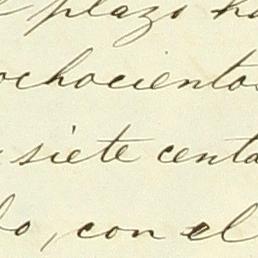 plazo
ochocientos
siete centa
do, con el